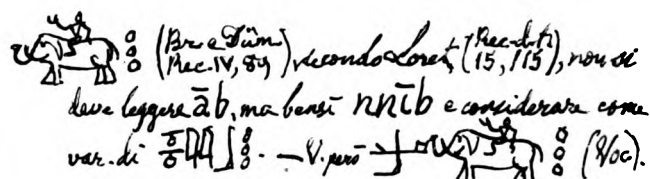 (Br. e Düm Rec. IV, 84) secondo Loret, (Rec. d. tr. 15, 115), non si
deve leggere āb, ma bensì nnīb e considerare come
var. di . — V. però (Voc.).